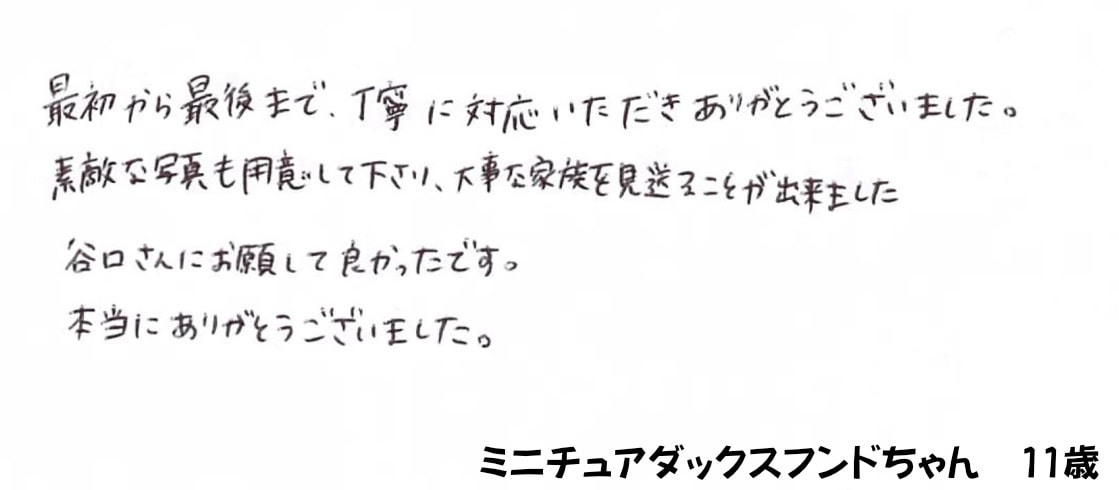 最初から最後まで、丁寧に対応いただきありがとうございました。
素敵な写真も用意して下さり、大事な家族を見送ることが出来ました
谷口さんにお願して良かったです。
本当にありがとうございました。
ミニチュアダックスフンドちゃん　11歳